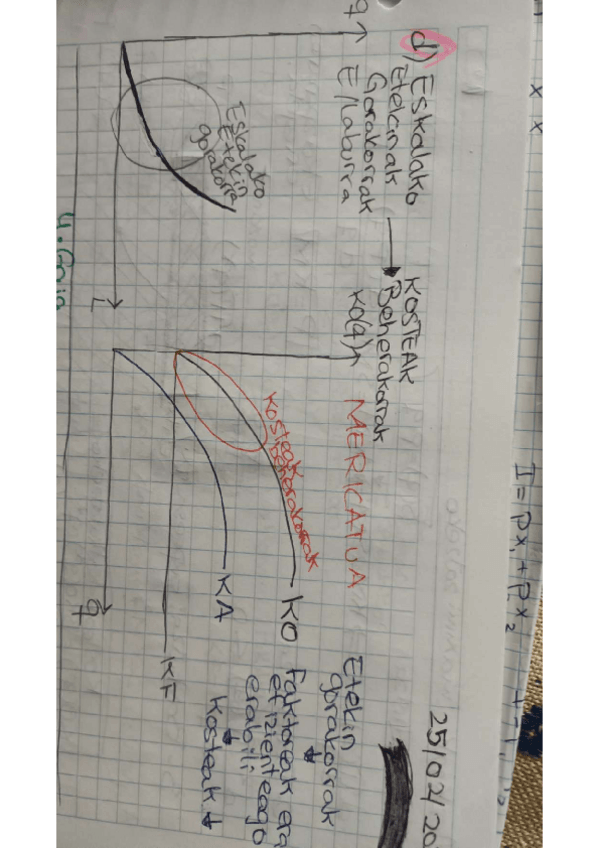 I = px₁ + px₂
25/02/20
d) Eskalako
Etekinak
Gorakorrak
E/Laburra
KOSTEAK
Beherakorrak
MERKATUA
q
Eskalako
Etekin
gorakorra
L
KO(q)
Kosteak
beherakorrak
KO
KA
KF
q
Etekin
gorakorrak
Faktoreak era
efizienteago
erabili
Kosteak ↓